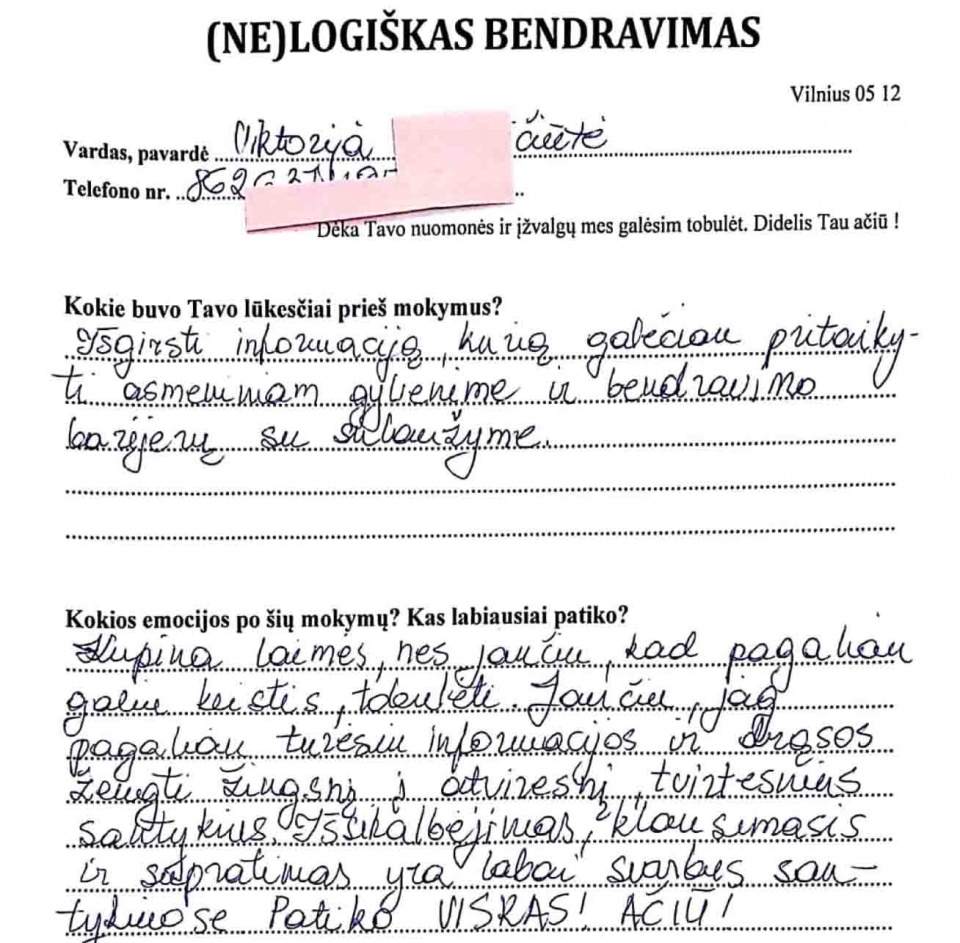 (NE)LOGIŠKAS BENDRAVIMAS
Vilnius 05 12
Vardas, pavardė Viktorija čiūtė
Telefono nr. 8626
Dėka Tavo nuomonės ir įžvalgų mes galėsim tobulėt. Didelis Tau ačiū !
Kokie buvo Tavo lūkesčiai prieš mokymus?
Išgirsti informaciją, kurią galėčiau pritaiky-
ti asmeniniam gyvenime ir bendravimo
barjerų
Kokios emocijos po šių mokymų? Kas labiausiai patiko?
Kupina laimės, nes jaučiu, kad pagaliau
galiu keistis, tobulėti. Jaučiu, jog
pagaliau turėsiu informacijos ir drąsos
žengti žingsnį į atviresnį, tvirtesnius
santykius. Išsikalbėjimas, klausimasis
ir supratimas yra labai svarbūs san-
tykiuose Patiko VISKAS! AČIŪ!